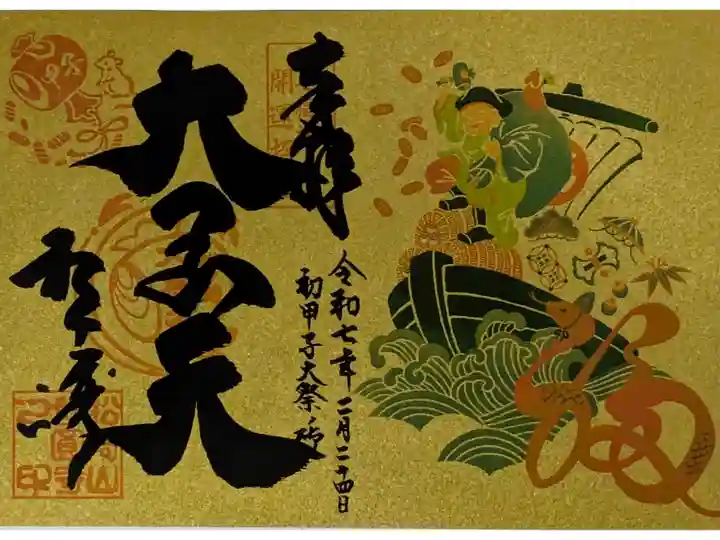 奉拝
開運
令和七年二月二十四日
初甲子大祭ノ砌
大黒天
松ヶ崎
福